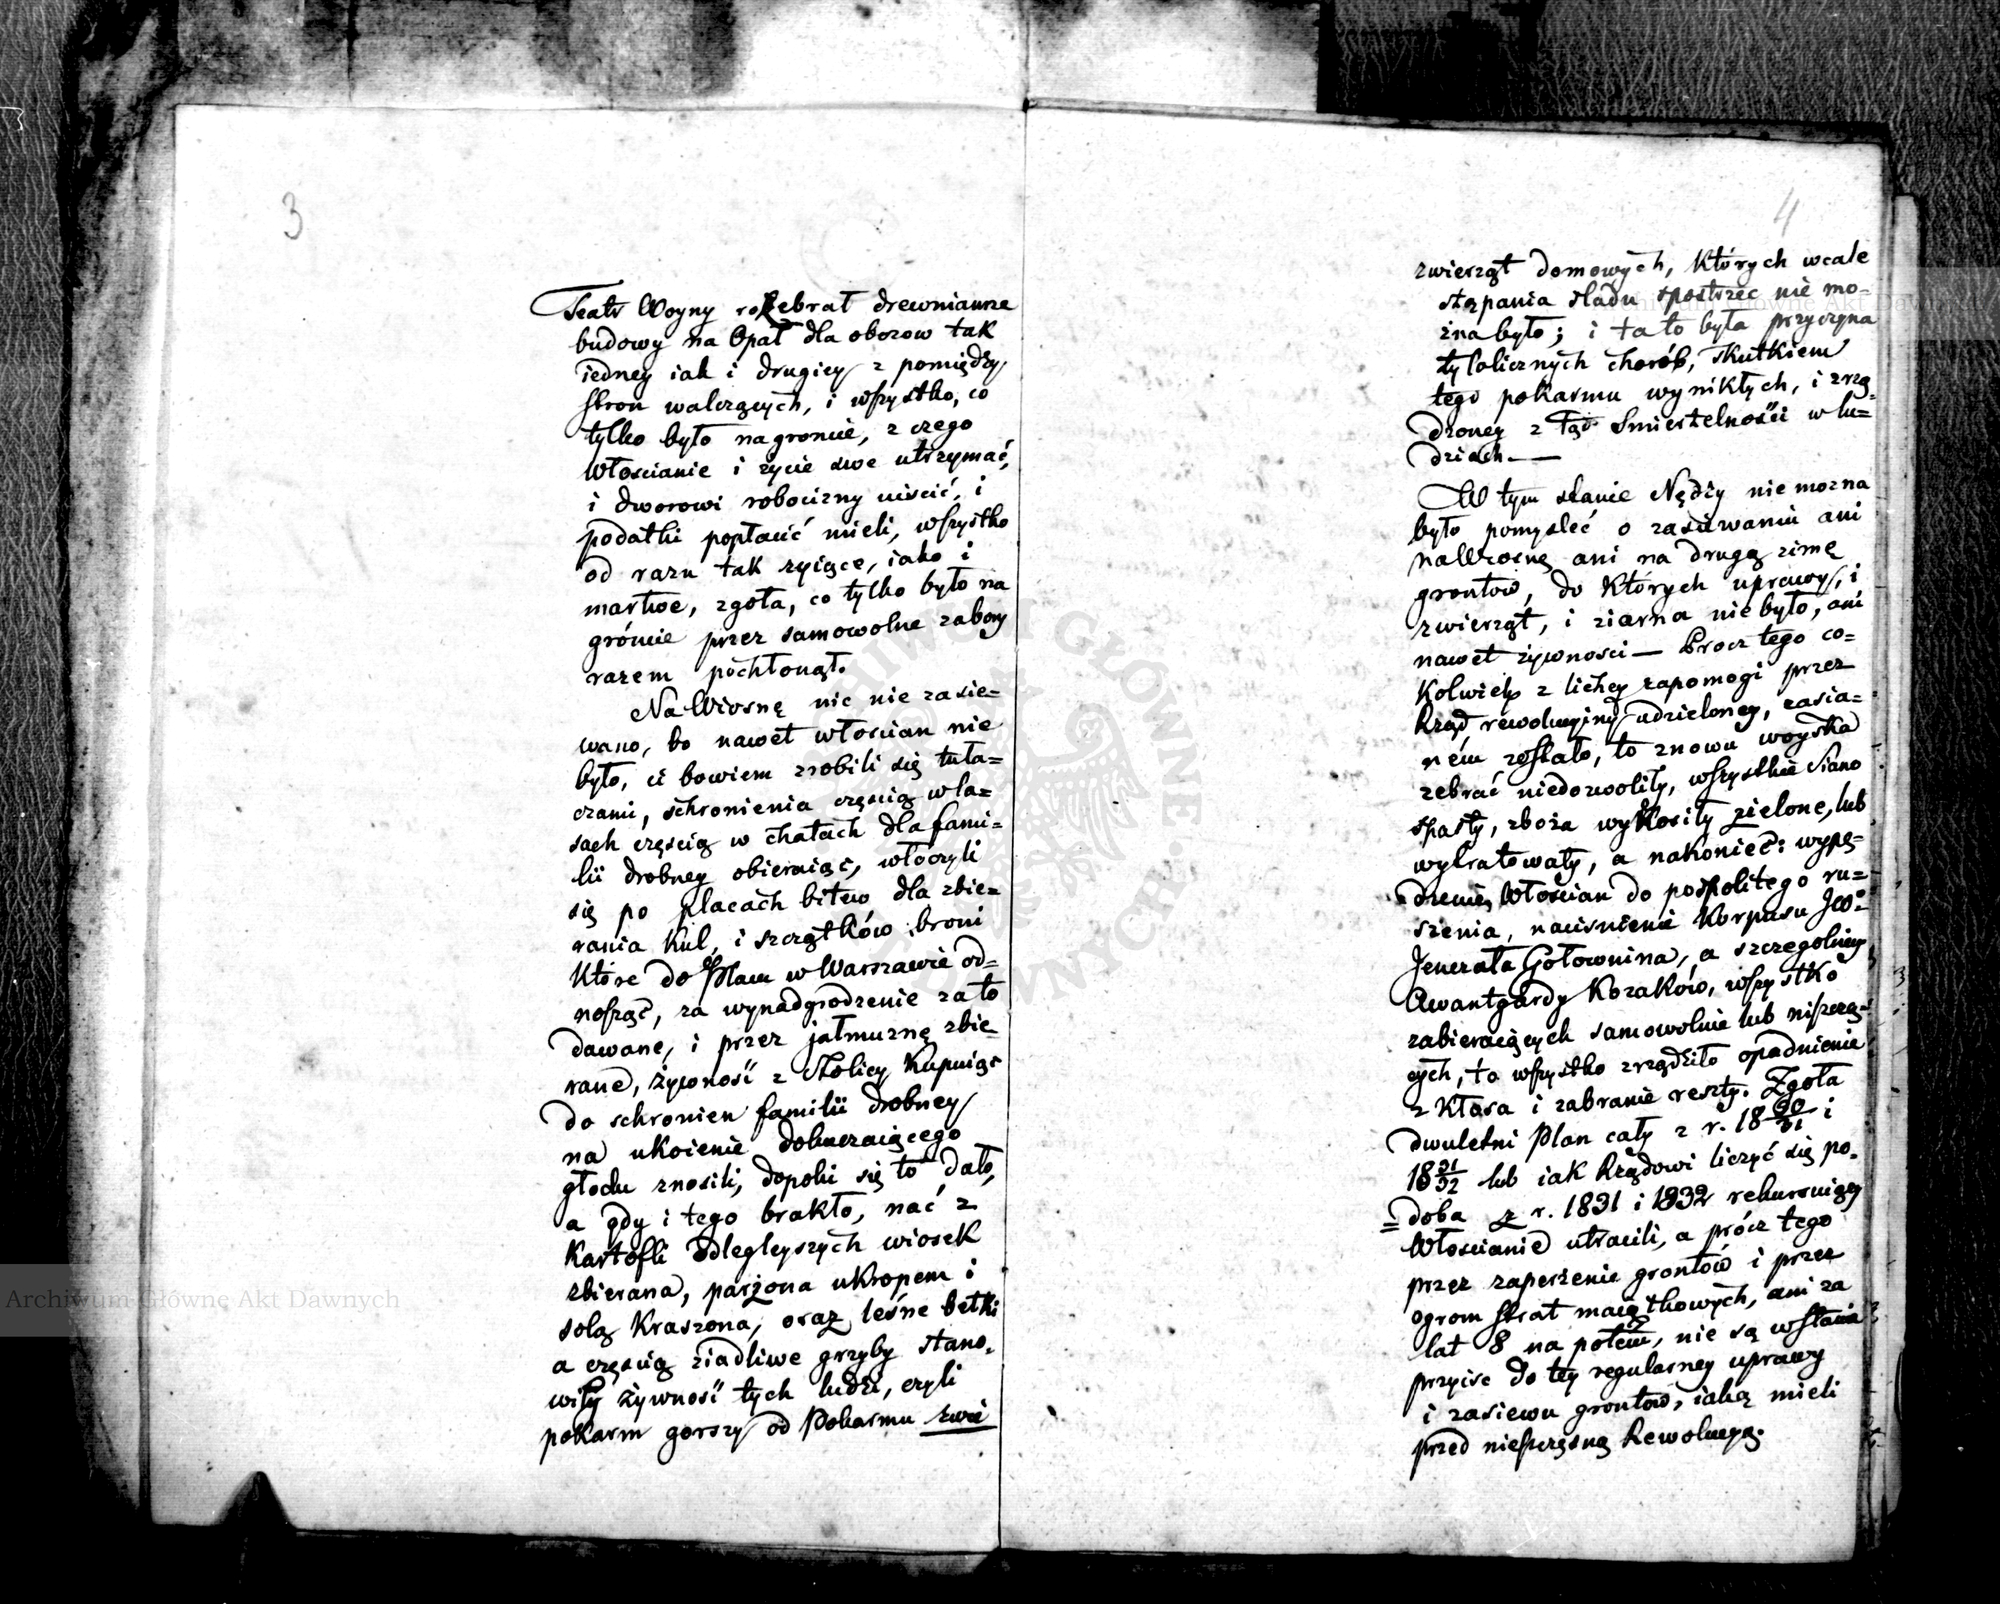 3
Teatr Woyny rozebrał drewnianne
budowy na Opał dla obozow tak
iedney iak i drugiey z pomiędzy
stron walczących, i wszystko, co
tylko było na groncie, z czego
Włoscianie i życie swe utrzymać,
i dworowi robocizny uiścić, i
podatki popłacić mieli, wszystko
od razu tak żyiące, iako i
martwe, zgoła, co tylko było na
gróncie przez samowolne zabory
razem pochłonął.
Na Wiosnę nic nie zasie=
wano, bo nawet włoscian nie
było, ci bowiem zrobili się tuła=
czami, schronienia częscią w la=
sach częscią w chatach dla fami=
lii drobney obieraiąc, włoczyli
się po placach bitew dla zbie=
rania Kul, i szczątków broni
Które do Placu w Warszawie od=
nosząc, za wynadgrodzenie za to
dawane, i przez jałmużnę zbie
rane, żywność z Stolicy Kupuiąc
do schronien familii drobney
na ukoienie dokuczaiącego
głodu znosili, dopoki się to dało,
a gdy i tego brakło, nać z
Kartofli odległeyszych wiosek
zbierana, parzona ukropem i
solą Kraszona, oraz leśne betki
a częscią ziadliwe grzyby stano=
wiły żywność tych ludzi, czyli
pokarm gorszy od Pokarmu zwie
4
zwierząt domowych, Których wcale
stąpania sladu spostrzec nie mo=
żna było; i ta to była przyczyna
tylolicznych chorób, skutkiem
tego pokarmu wynikłych, i zrzą=
dzoney z tąd Smiertelności w lu=
dziach —
W tym stanie Nędzy nie można
było pomysleć o zasiewaniu ani
na Wiosnę ani na drugą zimę
grontow, do Których uprawy, i
zwierząt, i ziarna nie było, ani
nawet żywnosci — Procz tego co=
Kolwiek z lichey zapomogi przez
Rząd rewolucyiny udzieloney, zasia=
ném zostało, to znowu woyska
zebrać niedozwoliły, wszystkie Siano
spasły, zboża wykosiły zielone, lub
wytratowały, a nakoniec: wypę=
dzenie Włoscian do pospolitego ru=
szenia, nacisnienie Korpusu JW=
Jenerała Gołownina, a szczegolniey
Awantgardy Kozaków, wszystko
zabieraiących samowolnie lub niszczą=
cych, to wszystko zrządziło opadnienie
z Kłosa i zabranie reszty. Zgoła
dwuletni Plan cały z r. 18 30/31 i
18 31/32 lub iak Rządowi liczyć się po=
= doba z r. 1831 i 1832 rekuruiący
Włoscianie utracili, a prócz tego
przez zaperzenie grontów i przez
ogrom strat maiątkowych, ani za
lat 8 na potem, nie są w stanie
przyisc do tey regularney uprawy
i zasiewu grontow, iaką mieli
przed nieszczęsną Rewolucyą.